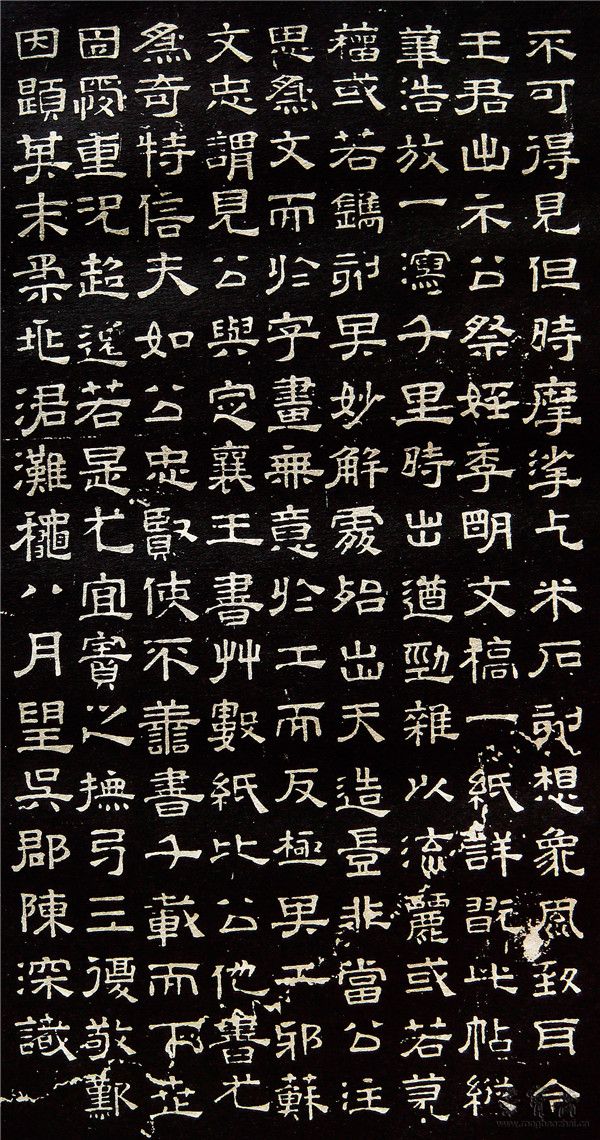 不可得見但時摩挲木石刻想象風致耳今
王君出示公祭姪季明文稿一紙詳翫此帖縱
筆浩放一瀉千里時出遒勁雜以流麗或若篆
籀或若鐫刻其妙解處殆出天造豈非當公注
思為文而於字畫無意於工而反極其工邪蘇
文忠謂見公與定襄王書艸數紙比公他書尤
為奇特信夫如公忠賢使不善書千載而下世
固愛重況超逸若是尤宜寶之撫弓三復敬歎
因題其末柔兆涒灘穐八月望吳郡陳深識
www.rongbaozhai.cn